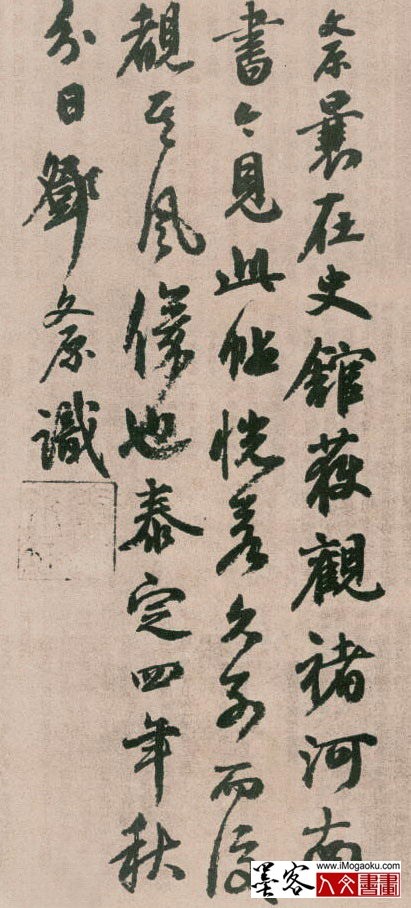 文原曩在史館獲觀褚河南
書今見此帖恍若久別而復
覩其風儀也泰定四年秋
分日鄧文原識
墨客
www.iMogaoku.com
人文書畫